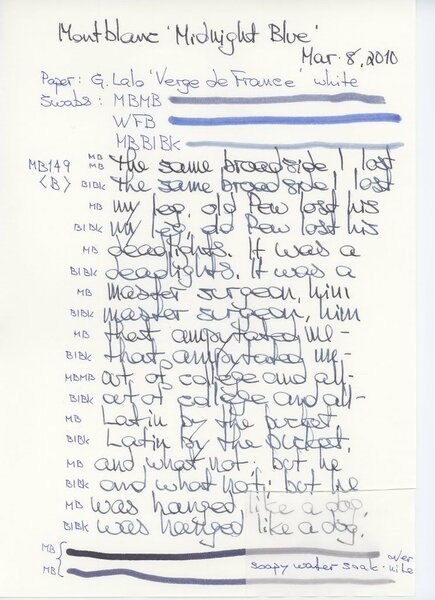 Montblanc 'Midnight Blue'
Mar. 8, 2010
Paper: G. Lalo 'Verge de France' white
Swabs: MBMB
WFB
MBBlBk
MB149 MB the same broadside I lost
<B> BlBk the same broadside I lost
MB my leg, old Pew lost his
BlBk my leg, old Pew lost his
MB deadlights. It was a
BlBk deadlights. It was a
MB master surgeon, him
BlBk master surgeon, him
MB that amputated me-
BlBk that amputated me-
MBMB out of college and all-
BlBk out of college and all-
MB Latin by the bucket,
BlBk Latin by the bucket,
MB and what not; but he
BlBk and what not; but he
MB was hanged like a dog,
BlBk was hanged like a dog,
MB over
MB soapy water soak - nite